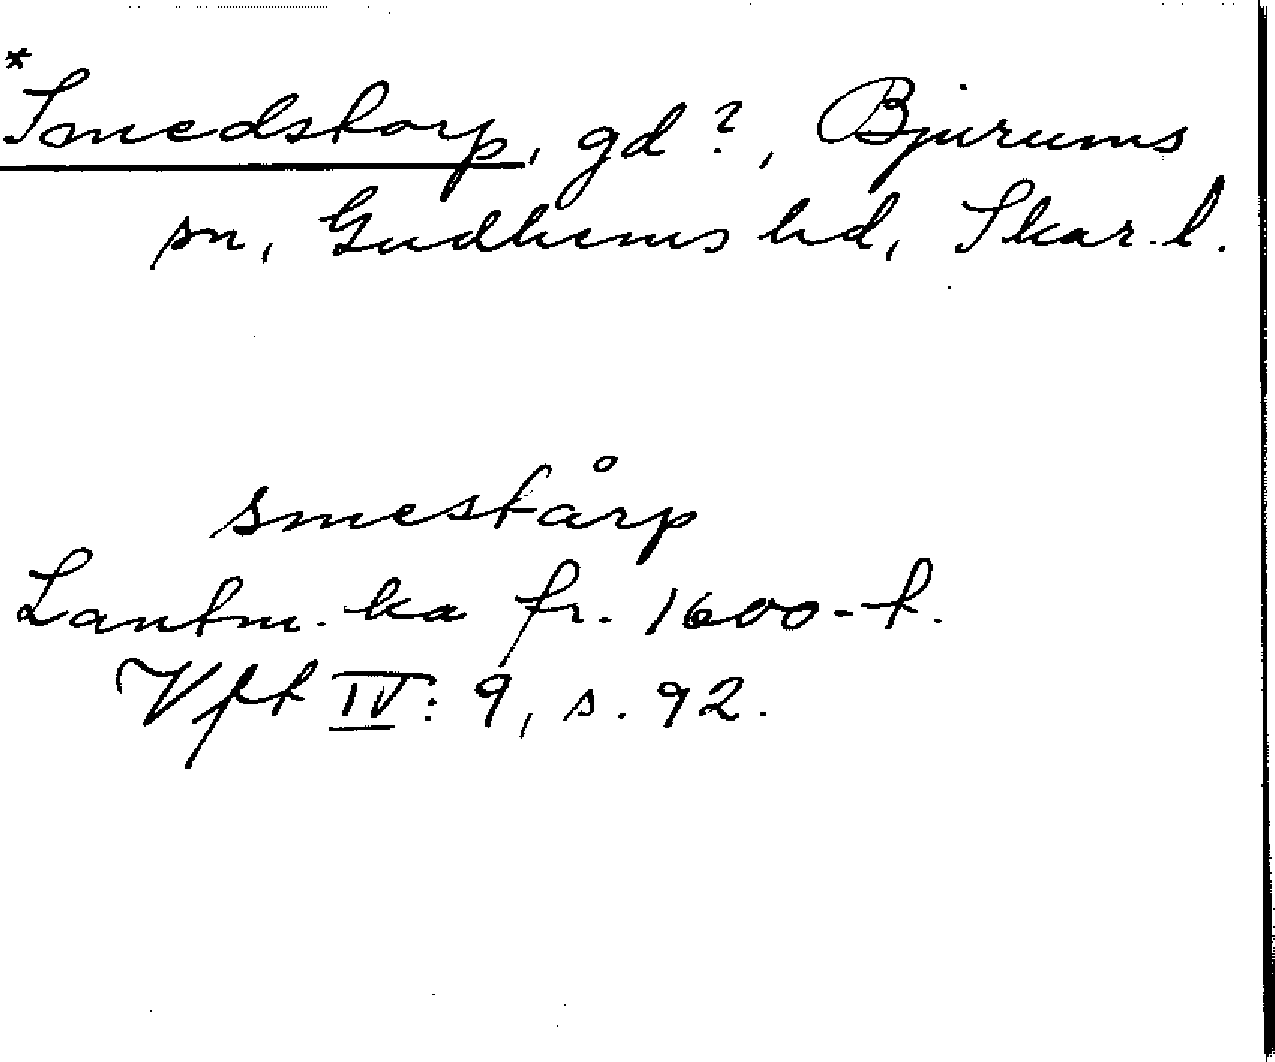 *Smedstorp, gd?, Bjurums
sn, Gudhems hd, Skar. l.
smestårp
Lantm. ka fr. 1600-t.
Vft IV: 9, s. 92.